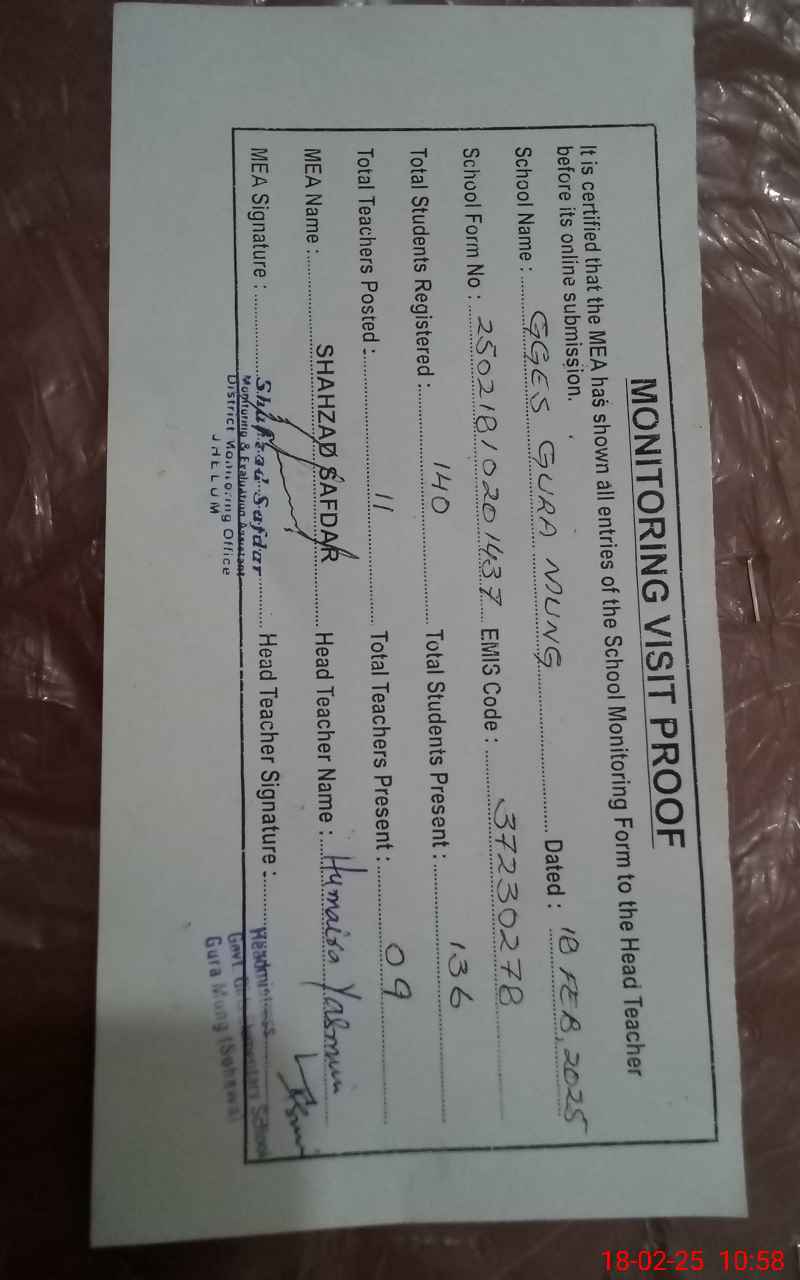 MONITORING VISIT PROOF
It is certified that the MEA has shown all entries of the School Monitoring Form to the Head Teacher
before its online submission.
School Name : GGES GURA MUNG Dated : 18 FEB, 2025
School Form No : 25021810201437 EMIS Code : 37230278
Total Students Registered : 140 Total Students Present : 136
Total Teachers Posted : 11 Total Teachers Present : 09
MEA Name : SHAHZAD SAFDAR Head Teacher Name : Humaira Yasmin
MEA Signature : Shahzad Safdar Head Teacher Signature :
Monitoring & Evaluation Assistant Headmistress
District Monitoring Office Govt. Girls Elementary School
JHELUM Gura Mung (Sohawa)
18-02-25 10:58